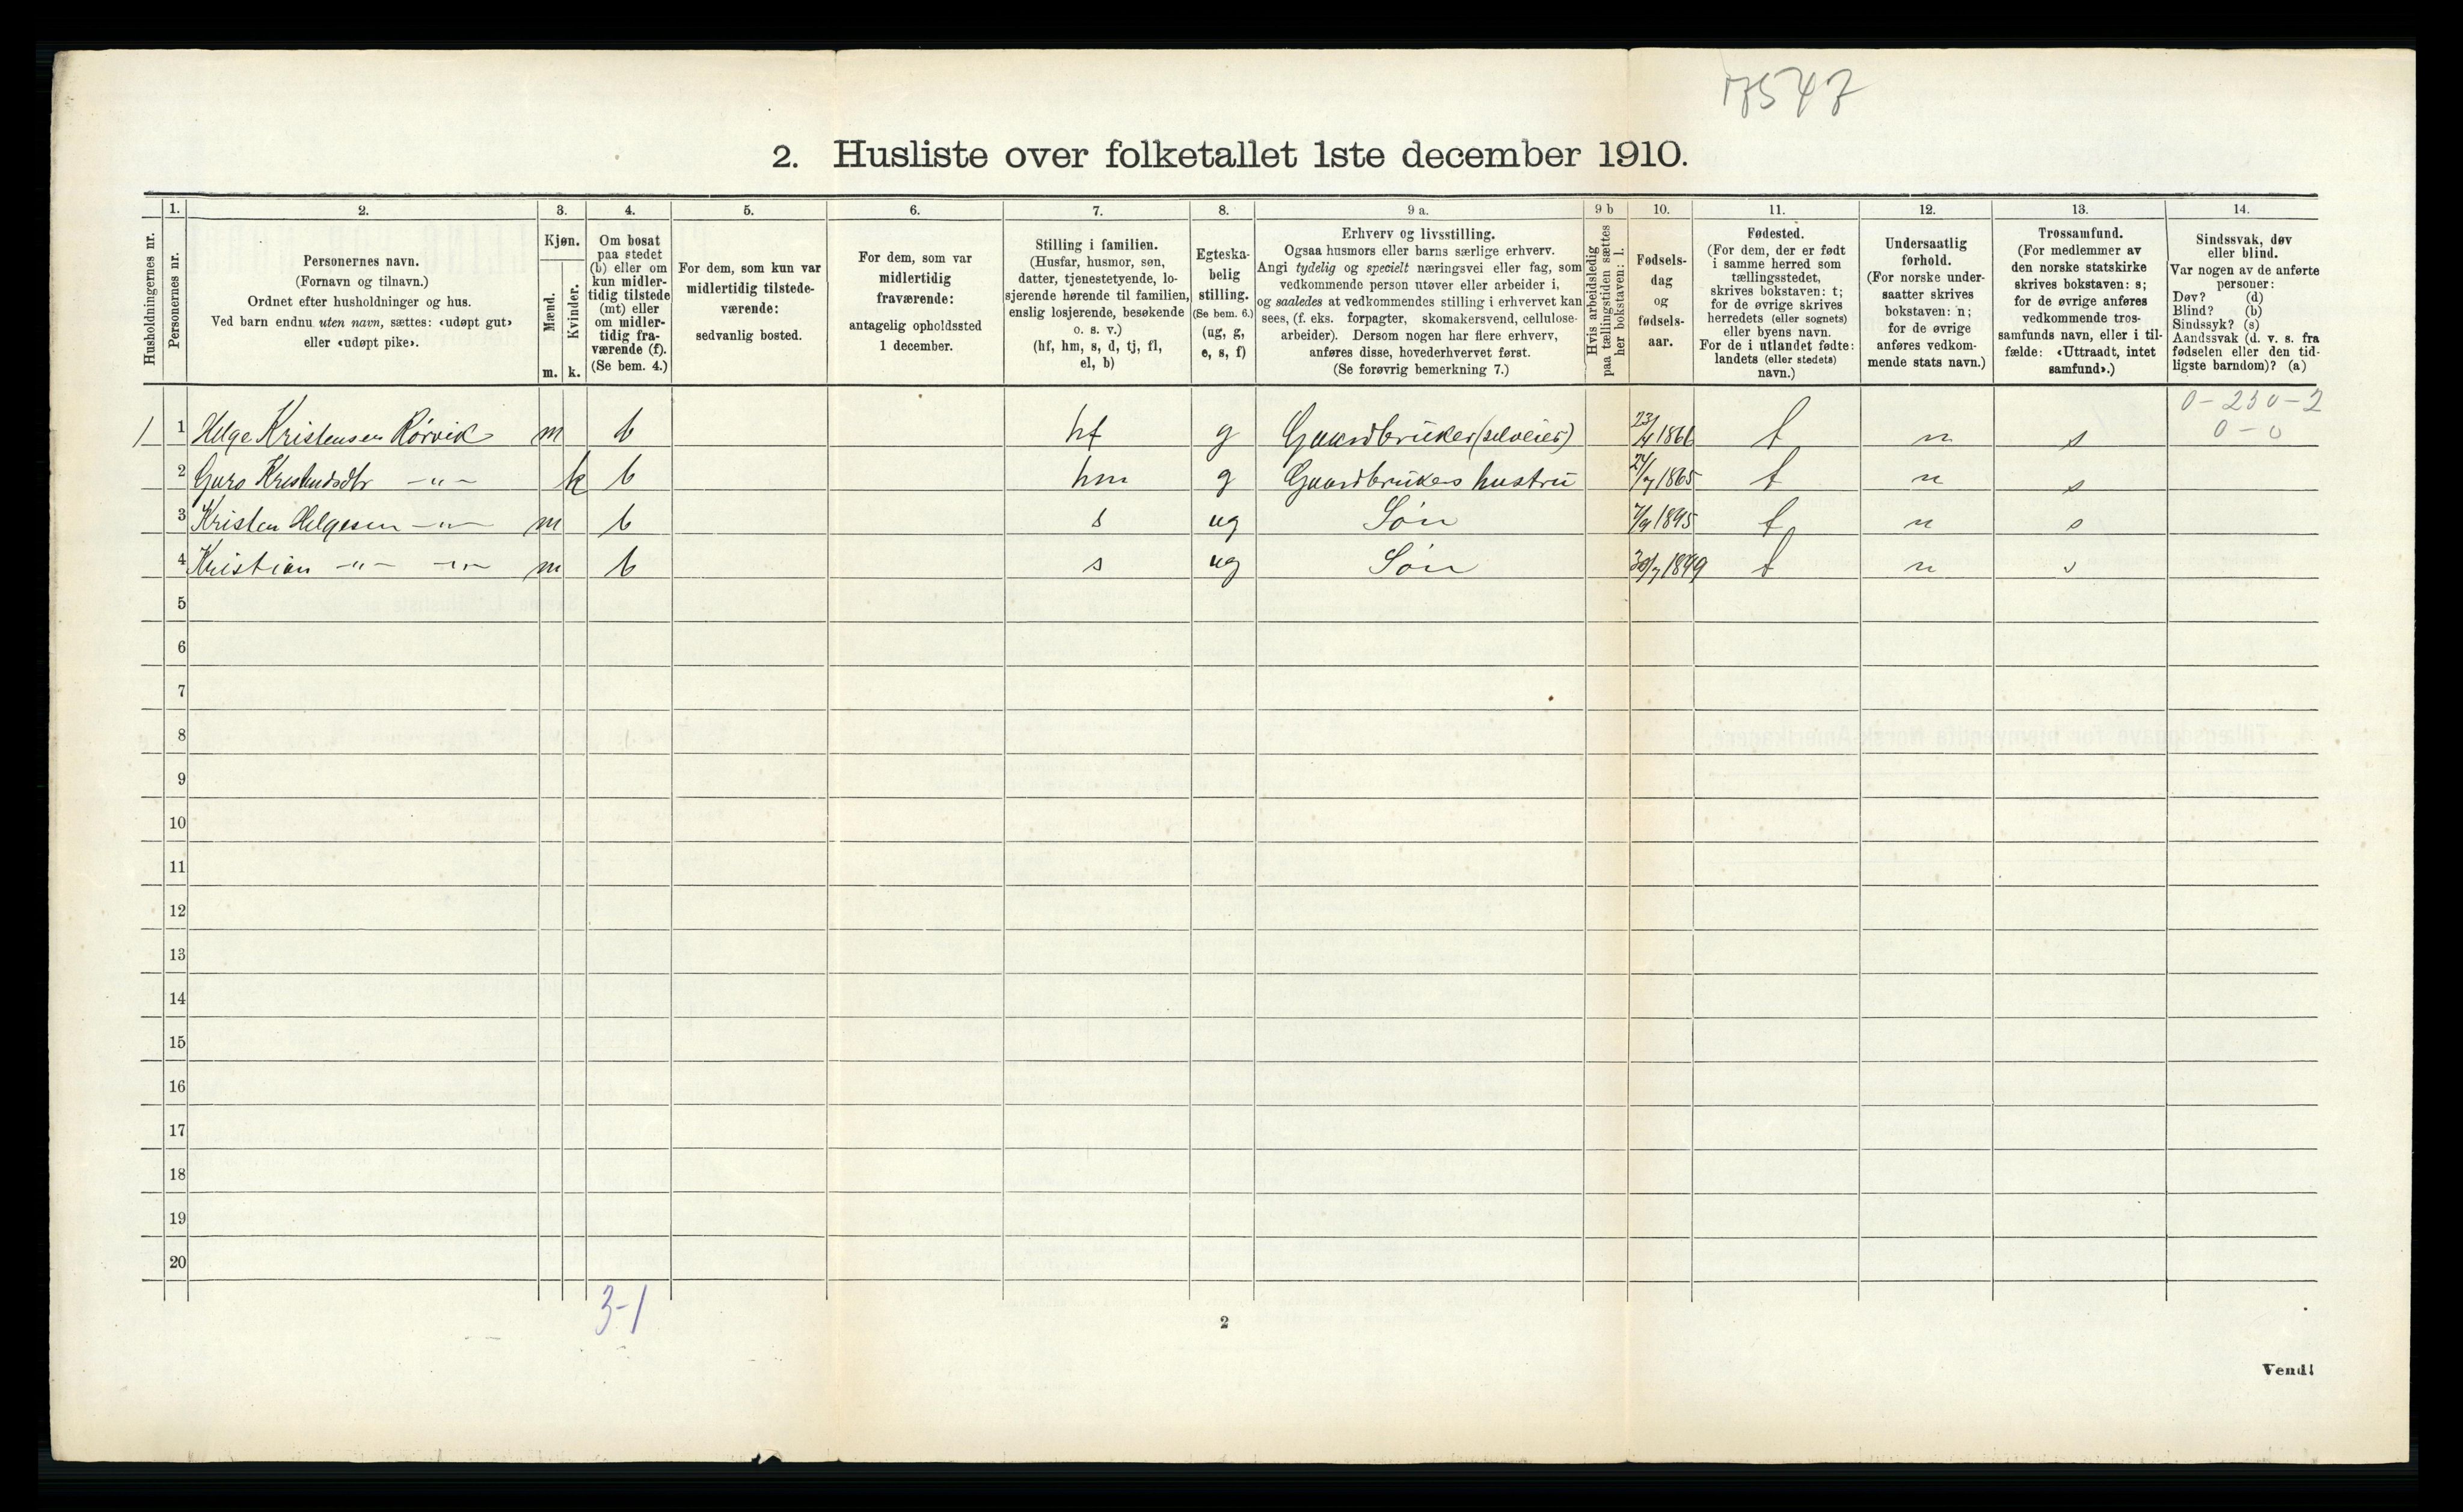 17547
2. Husliste over folketallet 1ste december 1910.
Husholdningernes nr.
1.
Personernes nr.
2.
Personernes navn.
(Fornavn og tilnavn.)
Ordnet efter husholdninger og hus.
Ved barn endnu uten navn, sættes: «udøpt gut»
eller «udøpt pike».
3.
Kjøn.
Mænd.
Kvinder.
m. k.
4.
Om bosat
paa stedet
(b) eller om
kun midler-
tidig tilstede
(mt) eller
om midler-
tidig fra-
værende (f).
(Se bem. 4.)
5.
For dem, som kun var
midlertidig tilstede-
værende:
sedvanlig bosted.
6.
For dem, som var
midlertidig
fraværende:
antagelig opholdssted
1 december.
7.
Stilling i familien.
(Husfar, husmor, søn,
datter, tjenestetyende, lo-
sjerende hørende til familien,
enslig losjerende, besøkende
o. s. v.)
(hf, hm, s, d, tj, fl,
el, b)
8.
Egteska-
belig
stilling.
(Se bem. 6.)
(ug, g,
e, s, f)
9 a.
Erhverv og livsstilling.
Ogsaa husmors eller barns særlige erhverv.
Angi tydelig og specielt næringsvei eller fag, som
vedkommende person utøver eller arbeider i,
og saaledes at vedkommendes stilling i erhvervet kan
sees, (f. eks. forpagter, skomakersvend, cellulose-
arbeider). Dersom nogen har flere erhverv,
anføres disse, hovederhvervet først.
(Se forøvrig bemerkning 7.)
9 b
Hvis arbeidsledig
paa tællingstiden sættes
her bokstaven: l.
10.
Fødsels-
dag
og
fødsels-
aar.
11.
Fødested.
(For dem, der er født
i samme herred som
tællingsstedet,
skrives bokstaven: t;
for de øvrige skrives
herredets (eller sognets)
eller byens navn.
For de i utlandet fødte:
landets (eller stedets)
navn.)
12.
Undersaatlig
forhold.
(For norske under-
saatter skrives
bokstaven: n;
for de øvrige
anføres vedkom-
mende stats navn.)
13.
Trossamfund.
(For medlemmer av
den norske statskirke
skrives bokstaven: s;
for de øvrige anføres
vedkommende tros-
samfunds navn, eller i til-
fælde: «Uttraadt, intet
samfund».)
14.
Sindssvak, døv
eller blind.
Var nogen av de anførte
personer:
Døv? (d)
Blind? (b)
Sindssyk? (s)
Aandssvak (d. v. s. fra
fødselen eller den tid-
ligste barndom)? (a)
0-250-2
0-0
1 1 Helge Kristensen Rørvik m b hf g Gaardbruker (selveier) 23/4 1866 t n s
2 Guro Kristensdtr -"- k b hm g Gaardbrukers hustru 24/7 1865 t n s
3 Kristen Helgesen -"- m b s ug Søn 7/9 1895 t n s
4 Kristian -"- -"- m b s ug Søn 30/7 1899 t n s
5
6
7
8
9
10
11
12
13
14
15
16
17
18
19
20
3-1
2
Vend!